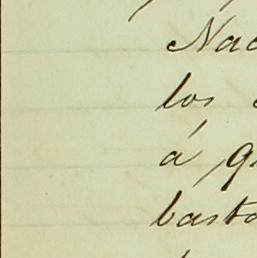 Nac
los
á q
basta